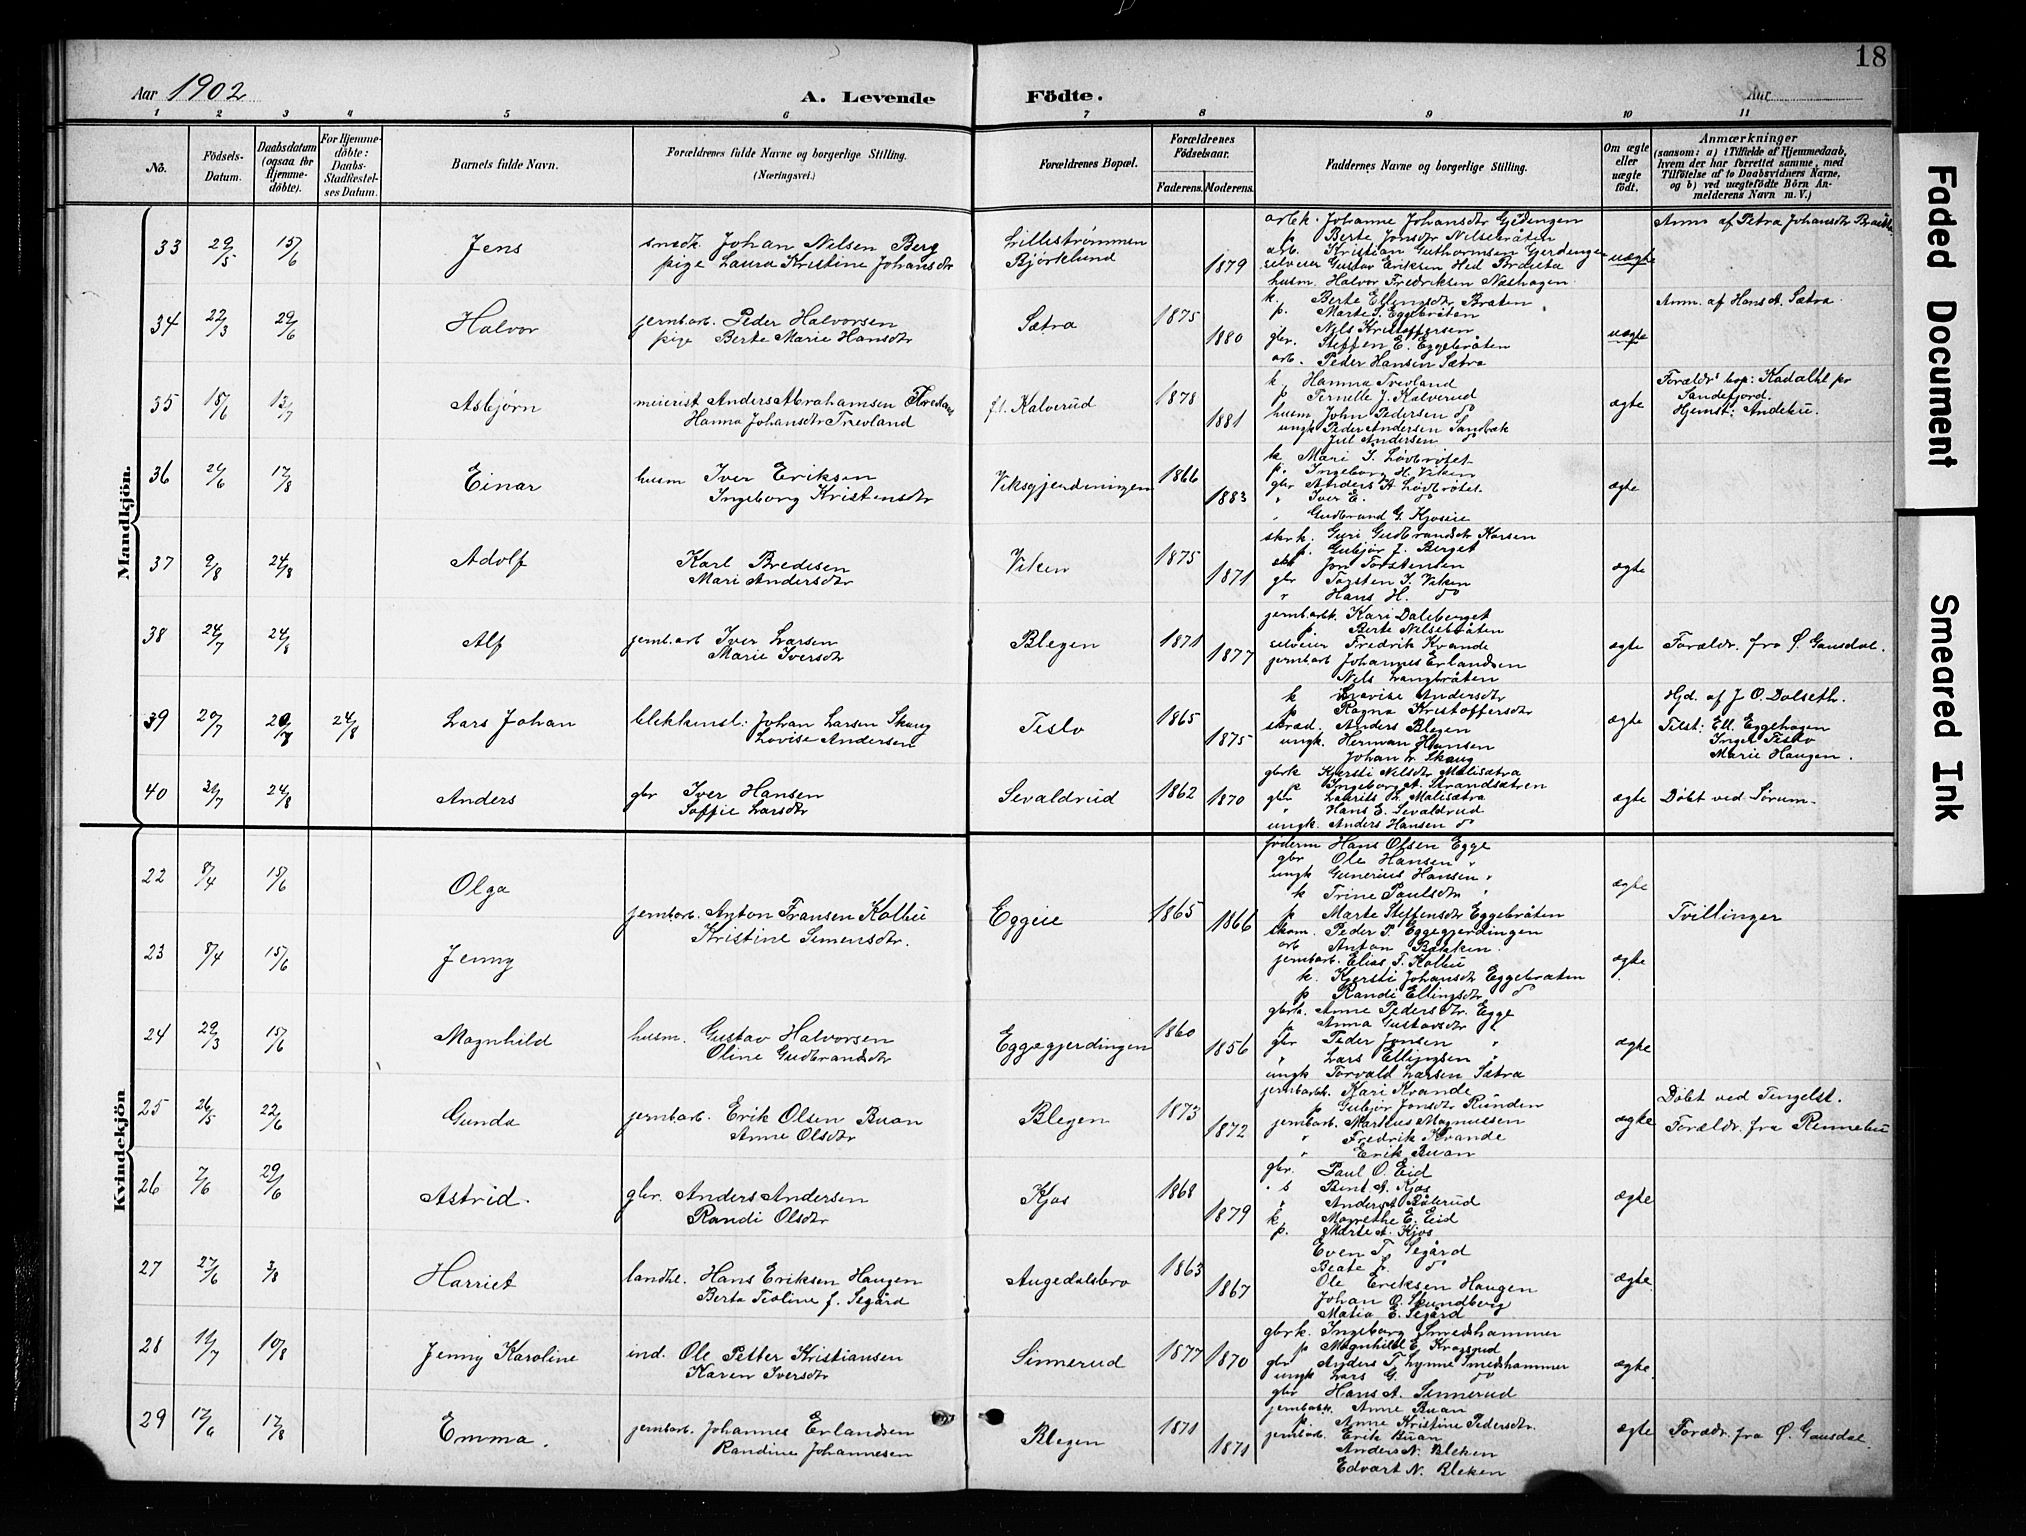 18
Aar 1902
A. Levende Födte.
Aar
1 2 3 4 5 6 7 8 9 10 11
No.
Födsels-Datum.
Daabsdatum (ogsaa for Hjemmedöbte).
For Hjemmedöbte: Daabs-Stadfæstelses Datum.
Barnets fulde Navn.
Forældrenes fulde Navne og borgerlige Stilling. (Næringsvei.)
Forældrenes Bopæl.
Forældrenes Födselsaar.
Faderens. Moderens.
Faddernes Navne og borgerlige Stilling.
Om ægte eller uægte födt.
Anmærkninger
(saasom: a) i Tilfælde af Hjemmedaab, hvem der har forrettet samme, med Tilföielse af to Daabsvidners Navne, og b) ved uægtefödte Börn Anmelderens Navn m. V.)
Mandkjön.
33 29/5 15/6 Jens
smedk. Johan Nilsen Berg
pige Laura Kristine Johansdtr
Lillestrømmen
Bjørklund
1879
arbk. Johanne Johansdtr Gjerdingen
p Berte Jonsdtr Nilsebråten
arb. Kristian Guthormsen Gjerdingen
selveier Gustav Eriksen Hed Brauta
husm. Halvor Fredriksen Næshagen
uægte
Anm af Petra Johansdtr
34 22/3 29/6 Halvor
jernbarb. Peder Halvorsen
pige Berte Marie Hansdtr
Sætra
1875
1880
k. Berte Ellingsdtr Bråten
p. Marte S. Eggebråten
Nils Kristoffersen
gbr. Steffen E. Eggebråten
arb. Peder Hansen Sætra
uægte
Anm. af Hans A. Sætra.
35 18/6 13/7 Asbjørn
meierist Anders Abrahamsen
Hanna Johansdtr Trevland
f.t. Kalverud
1878
1881
k Hanna Trevland
p Pernelle J. Kalverud
husm John Pedersen do
ungk Peder Andersen Sandbæk
Jul Andersen do
ægte
Forældr's bop: Kadalht pr
Sandefjord.
Hjemst: Andebu.
36 24/6 17/8 Einar
husm Iver Eriksen
Ingeborg Kristensdtr
Viksgjerdeningen
1866
1883
k Mari I. Løvbrøtet
p. Ingeborg H. Viken
gbr Anders A. Løvbrøtet.
" Iver E. do
" Gudbrand G. Kjoseie
ægte
37 9/8 24/8 Adolf
Karl Bredesen
Mari Andersdtr
Viken
1875
1871
skr k. Guri Gudbrandsdtr Korsen
p. Gubjør J. Berget
Jon Torstensen
gbr Torsten J. Viken
" Hans H. do
ægte
38 24/7 24/8 Alf
jernbarb Iver Larsen
Marie Iversdtr
Blegen
1871
1877
jernbarbk. Kari Daleberget
p. Berte Nilsebråten
selveier Fredrik Kvande
jernbarb Johannes Erlandsen
Nils Langbråten
ægte
Forældr. fra Ø. Gausdal.
39 20/7 20/7 24/8 Lars Johan
blekkensl. Johan Larsen Skaug
Lovise Andersen
Teslo
1865
1875
k Lovise Andersdtr
p Ragna Kristoffersdtr
skræd. Anders Blegen
ungk. Herman Hansen
Johan L. Skaug
ægte
Hjd. af J. O. Dolseth.
Tilst: Ell. Eggehagen
Inga Teslo
Marie Haugen.
40 21/7 24/8 Anders
gbr Iver Hansen
Soffie Larsdtr
Sevaldrud
1862
1870
gbrk Kjersti Nilsdtr Malisætra
p Ingeborg A. Strandsætren
gbr Laurits L. Malisætra
" Hans E. Sevaldrud
ungk. Anders Hansen do
ægte
Døbt ved Sørum.
Kvindekjön
22 8/4 15/6 Olga
jernbarb. Anton Fransen Kolbu
Kristine Simensdtr.
Eggeie
1865
1866
føderm Hans Olsen Egge
gbr Ole Hansen "
ungk Gunerius Hansen "
k Trine Paulsdtr "
p Marte Steffensdtr Eggebråten
ægte
Tvillinger
23 8/4 15/6 Jenny
skom. Peder P. Eggegjerdingen
arb Anton Bakken.
jernbarb. Elias T. Kolbu
k. Kjersti Johansdtr Eggebråten
p Randi Ellingsdtr do
ægte
24 29/3 15/6 Magnhild
husm. Gustav Halvorsen
Oline Gudbrandsdtr
Eggegjerdingen
1860
1856
gbrk. Anne Pedersdtr. Egge
p Anna Gustavsdtr "
gbr Peder Jonsen "
" Lars Ellingsen "
ungk Torvald Larsen Sætra
ægte
25 26/5 22/6 Gunda
jernbarb. Erik Olsen Buan
Anne Olsdtr
Blegen
1873
1872
jernbarbk. Kari Kvande
p Gubjør Jonsdtr Runden
jernbarb. Martius Magnussen
" Fredrik Kvande
" Erik Buan
ægte
Døbt ved Tingelst.
Forældr. fra Rennebu
26 7/6 29/6 Astrid.
gbr. Anders Andersen
Randi Olsdtr
Kjos
1868
1879
gbr. Paul O. Eid
" s Bent A. Kjos
" Anders A Bålerud
k. Magrethe E. Eid
p. Marte A. Kjos
ægte
27 27/6 3/8 Harriet
landhl. Hans Eriksen Haugen
Berta Teoline f. Segård
Augedalsbro
1863
1867
Even T. Segård
Beate f. do
Ole Eriksen Haugen
Johan O. Skundberg
Matia E. Segård
ægte
28 11/7 10/8 Jenny Karoline
ind. Ole Petter Kristiansen
Karen Iversdtr
Sinnerud
1877
1870
gbrk. Ingeborg Smedshammer
p Magnhild E. Krogsrud
gbr Anders T. Lynne Smedshammer
ungk Lars G. do
gbr Hans A. Sinnerud
ægte.
29 17/6 17/8 Emma.
jernbarb. Johannes Erlandsen
Randine Johannesen
Blegen
1871
1871
jernbarbk. Anne Buan
p. Anne Kristine Pedersdtr.
jernbarb. Erik Buan
Anders N. Bleken
Edvart N. Bleken
ægte
Forældr. fra Ø. Gausdal.
Faded Document
Smeared Ink